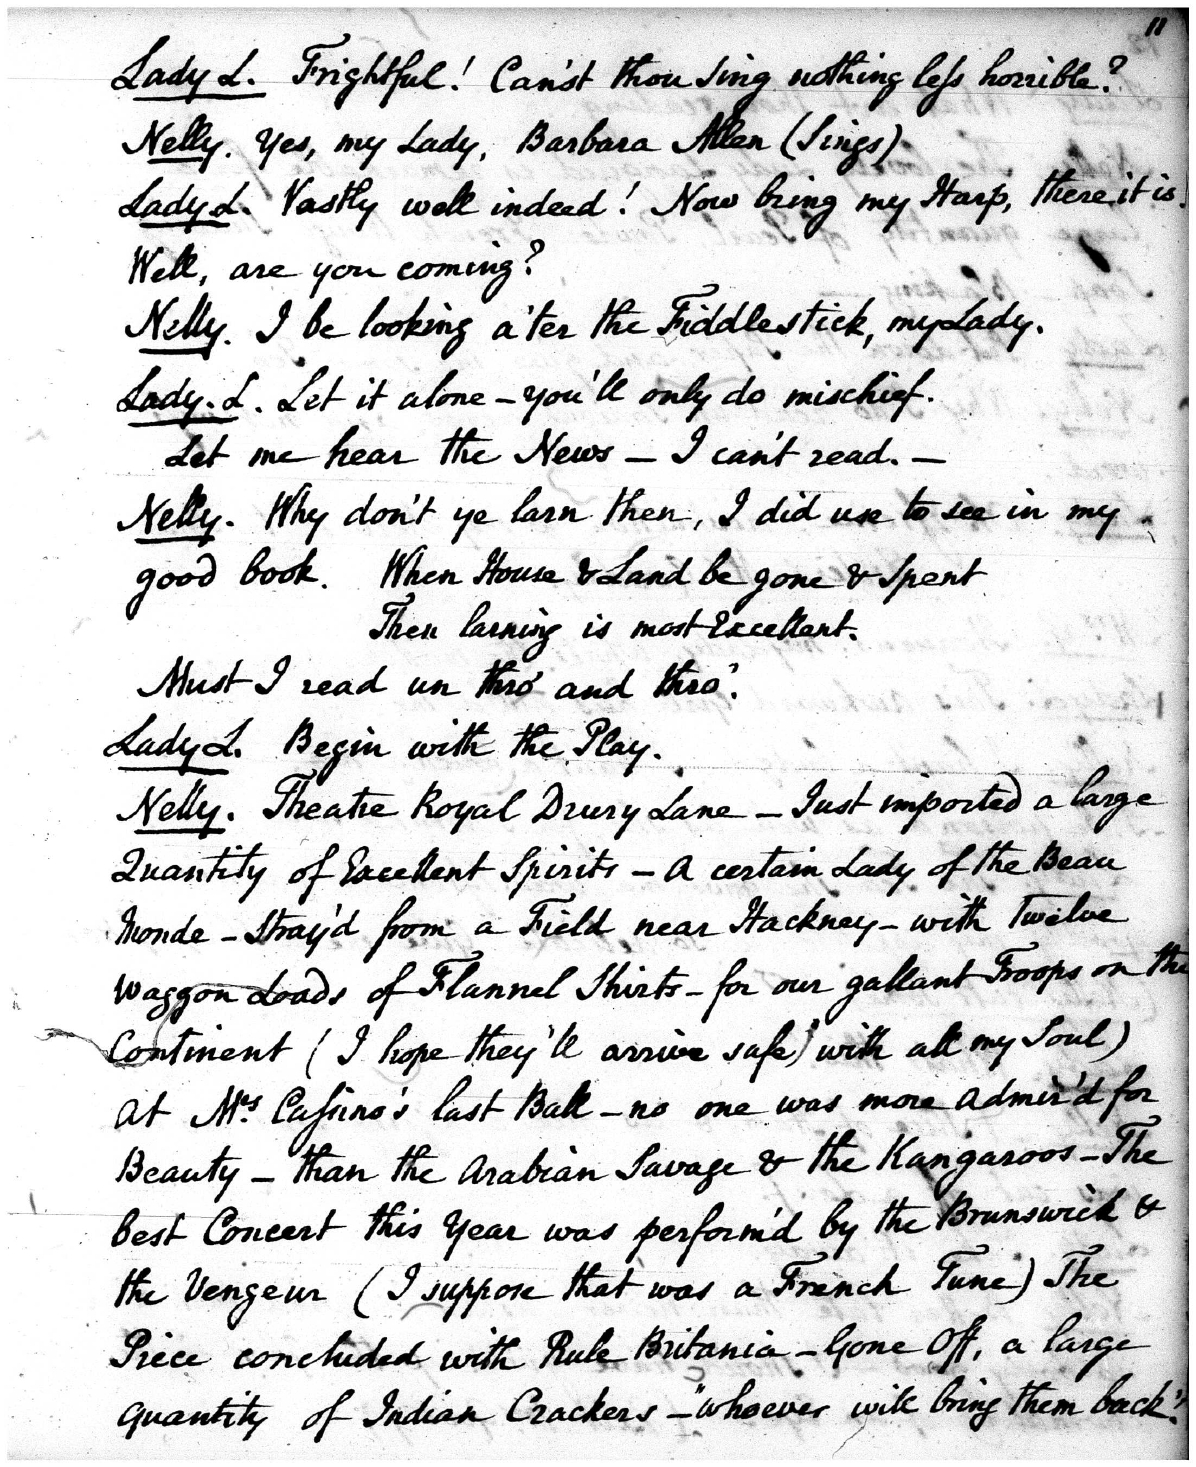 11
Lady L. Frightful! Can'st thou sing nothing leſs horrible?
Nelly. Yes, my Lady, Barbara Allen (Sings)
Lady L. Vastly well indeed! Now bring my Harp, there it is.
Well, are you coming?
Nelly. I be looking a'ter the Fiddlestick, my Lady.
Lady. L. Let it alone – you'll only do mischief.
Let me hear the News – I can't read. –
Nelly. Why don't ye larn then, I did use to see in my
good book. When House & Land be gone & Spent
Then larning is most Excellent.
Must I read un thro' and thro'.
Lady L. Begin with the Play.
Nelly. Theatre Royal Drury Lane – Just imported a large
Quantity of Excellent Spirits – A certain Lady of the Beau
Monde – Stray'd from a Field near Hackney – with Twelve
Waggon Loads of Flannel Shirts – for our gallant Troops on the
Continent (I hope they'll arrive safe) with all my Soul)
At Mrs. Caſsino's last Ball – no one was more admir'd for
Beauty – than the Arabian Savage & the Kangaroos – The
best Concert this Year was perform'd by the Brunswick &
the Vengeur (I suppose that was a French Tune) The
Piece concluded with Rule Britania – Gone Off, a large
quantity of Indian Crackers – "whoever will bring them back".